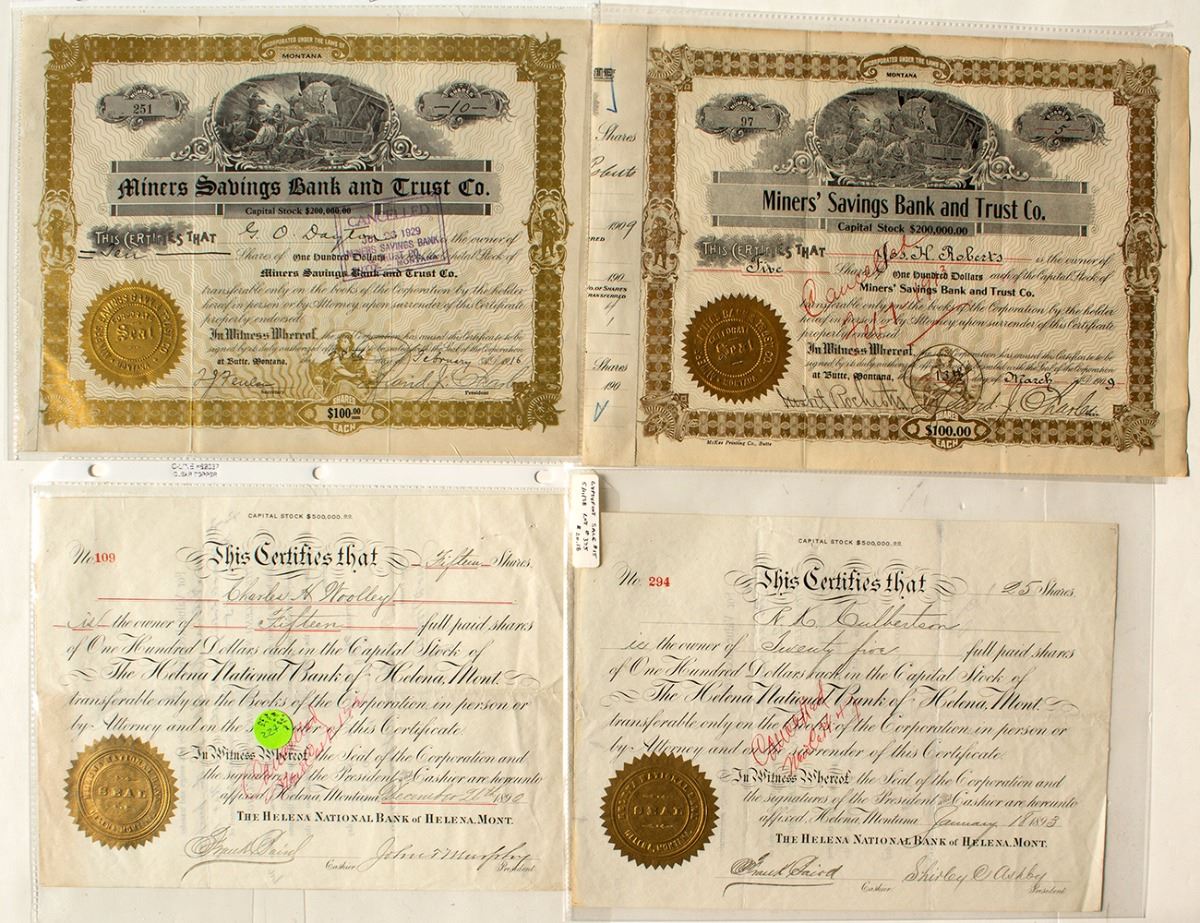 INCORPORATED UNDER THE LAWS OF
MONTANA
NUMBER
251
SHARES
-10-
Miners Savings Bank and Trust Co.
Capital Stock $200,000.00
THIS CERTIFIES THAT G. O. Dayton is the owner of
Ten Shares of One Hundred Dollars each of the Capital Stock of
Miners Savings Bank and Trust Co.
transferable only on the books of the Corporation by the holder
hereof in person or by Attorney upon surrender of this Certificate
properly endorsed.
In Witness Whereof, the said Corporation has caused this Certificate to be
signed by its duly authorized officers and to be sealed with the Seal of the Corporation
at Butte, Montana, day of February A.D. 1916
Secretary President
SHARES
$100.00
EACH
CANCELLED
1929
MINERS SAVINGS BANK
MONTANA
Seal
INCORPORATED UNDER THE LAWS OF
MONTANA
NUMBER
97
SHARES
5
Miners' Savings Bank and Trust Co.
Capital Stock $200,000.00
THIS CERTIFIES THAT Chas. H. Roberts is the owner of
Five Shares of One Hundred Dollars each of the Capital Stock of
Miners' Savings Bank and Trust Co.
transferable only on the books of the Corporation by the holder
hereof in person or by Attorney upon surrender of this Certificate
properly endorsed.
In Witness Whereof, the said Corporation has caused this Certificate to be
signed by its duly authorized officers and to be sealed with the Seal of the Corporation
at Butte, Montana, this 13th day of March A.D. 1909
SHARES
$100.00
EACH
McKee Printing Co., Butte
Cancelled
Seal
Shares
1909
190
NO. OF SHARES
TRANSFERRED
Shares
190
CAPITAL STOCK $500,000.00.
No. 109 This Certifies that Fifteen Shares.
Charles H Woolley
is the owner of Fifteen full paid shares
of One Hundred Dollars each in the Capital Stock of
The Helena National Bank of Helena, Mont.
transferable only on the Books of the Corporation in person or
by Attorney and on the surrender of this Certificate.
In Witness Whereof the Seal of the Corporation and
the signatures of the President and Cashier are hereunto
affixed, Helena, Montana December 20th 1890
THE HELENA NATIONAL BANK of HELENA, MONT.
Frank Baird John T Murphy
Cashier President.
Cancelled
SEAL
CAPITAL STOCK $500,000.00.
No. 294 This Certifies that 25 Shares.
R. K. Culbertson
is the owner of Twenty five full paid shares
of One Hundred Dollars each in the Capital Stock of
The Helena National Bank of Helena, Mont.
transferable only on the Books of the Corporation in person or
by Attorney and on the surrender of this Certificate.
In Witness Whereof the Seal of the Corporation and
the signatures of the President and Cashier are hereunto
affixed, Helena, Montana January 18 1893
THE HELENA NATIONAL BANK of HELENA, MONT.
Frank Baird Shirley C Ashby
Cashier. President.
Cancelled
SEAL